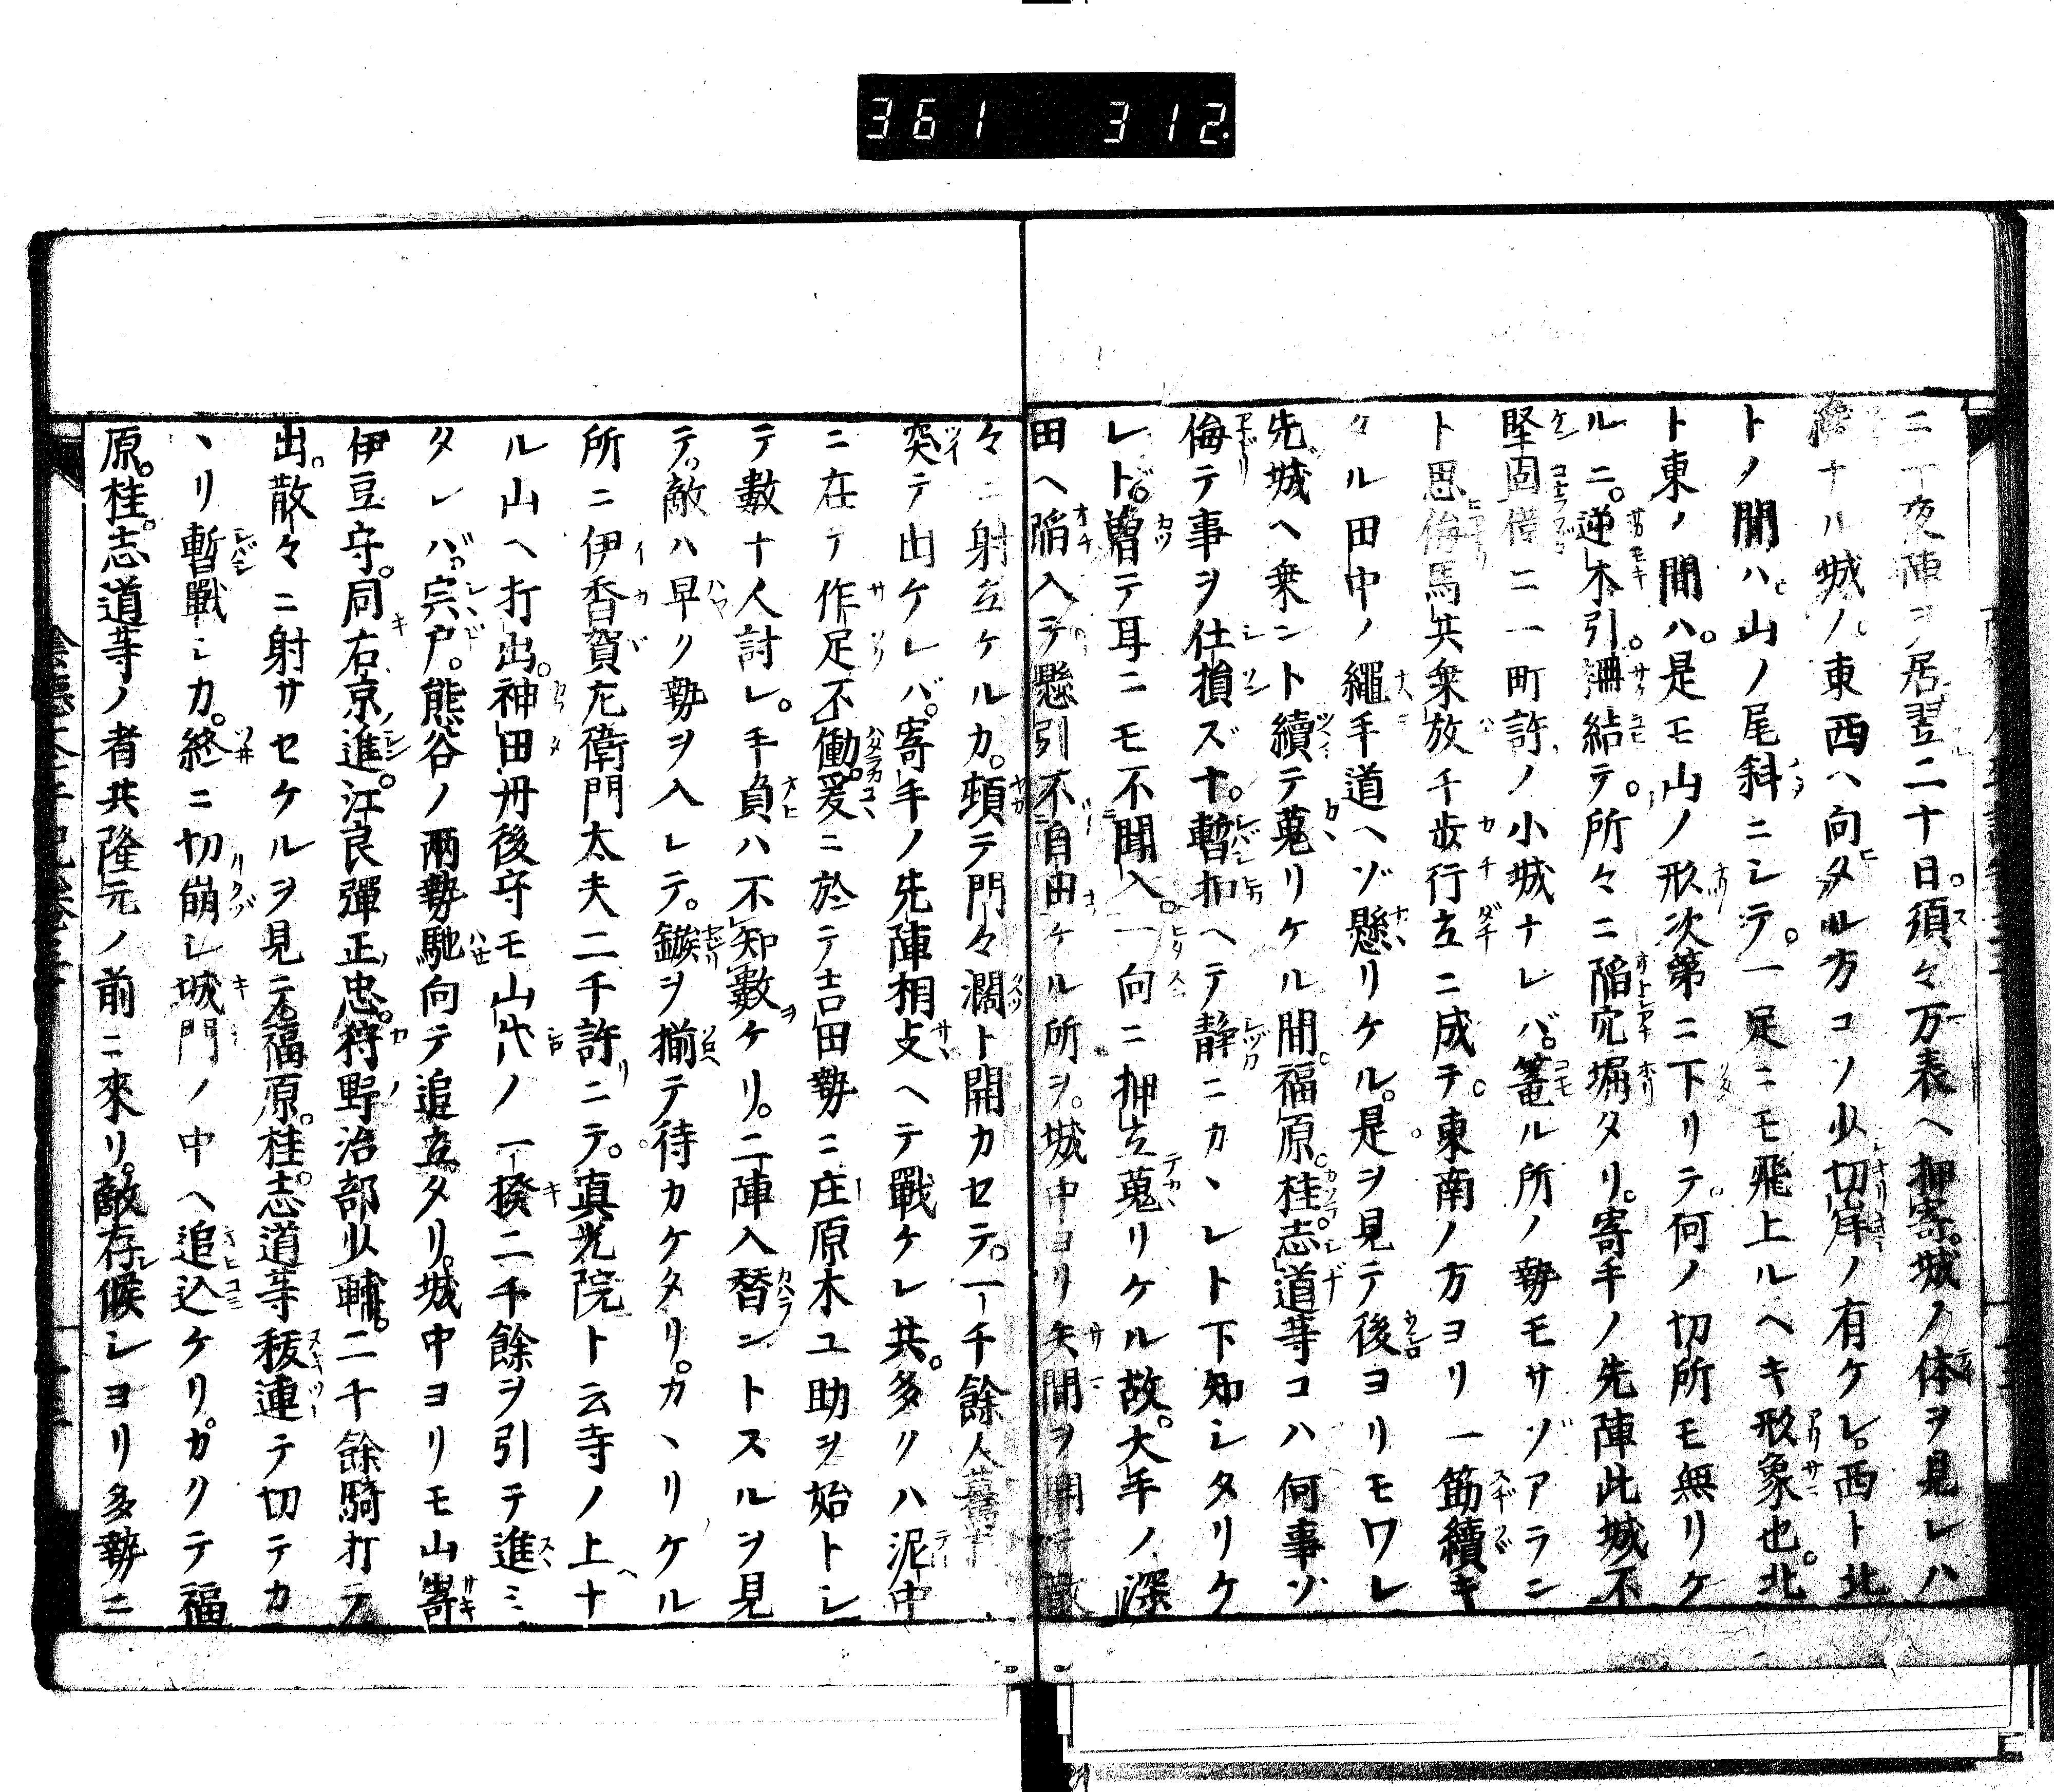 361 312.
ニ一夜陣ヲ居翌二十日。須々万表ヘ押寄。城ノ体ヲ見レハ
ナル城ノ東西ハ向タル方コソ少切岸ノ有ケレ。西ト北
トノ間ハ山ノ尾斜ニシテ。一足ニモ飛上ルヘキ形象也。北
ト東ノ間ハ。是モ山ノ形次第ニ下リテ何ノ切所モ無リケ
ルニ。逆木引。柵結テ。所々ニ陥穴堀タリ。寄手ノ先陣此城不
堅固僅ニ一町許ノ小城ナレバ。篭ル所ノ勢モサゾアラン
ト思侮馬共乗放チ歩行立ニ成テ。東南ノ方ヨリ一筋續キ
タル田中ノ繩手道ヘゾ懸リケル。是ヲ見テ後ヨリモワレ
先城ヘ乗ント續テ蒐リケル間。福原。桂。志道等コハ何事ゾ
侮テ事ヲ仕損ズナ。暫扣ヘテ静ニカヽレト下知シタリケ
レド。曽テ耳ニモ不聞入。一向ニ押立蒐リケル故。大手ノ深
田ヘ陥入テ懸引不自由ケル所ヲ。城中ヨリ矢間ヲ開テ散
々ニ射立ケルカ。頓テ門々濶ト開カセテ。一千餘人
突テ出ケレバ。寄手ノ先陣相支ヘテ戰ケレ共。多クハ泥中
ニ在テ作足不働。爰ニ於テ吉田勢ニ庄原木工助ヲ始トシ
テ數十人討レ。手負ハ不知數ケリ。二陣入替ントスルヲ見
テ。敵ハ早ク勢ヲ入レテ。鏃ヲ揃テ待カケタリ。カヽリケル
所ニ伊香賀左衛門太夫二千許ニテ。真光院ト云寺ノ上ナ
ル山ヘ打出。神田丹後守モ山代ノ一揆二千餘ヲ引テ進ミ
タレバ。宍戸。熊谷ノ兩勢馳向テ追立タリ。城中ヨリモ山嵜
伊豆守。同右京進。江良彈正忠。狩野治部少輔。二千餘騎打テ
出。散々ニ射サセケルヲ見テ。福原。桂。志道等秡連テ切テカ
ヽリ暫戰シカ。終ニ切崩シ城門ノ中ヘ追込ケリ。カクテ福
原。桂。志道等ノ者共隆元ノ前ニ來リ。敵存候シヨリ多勢ニ